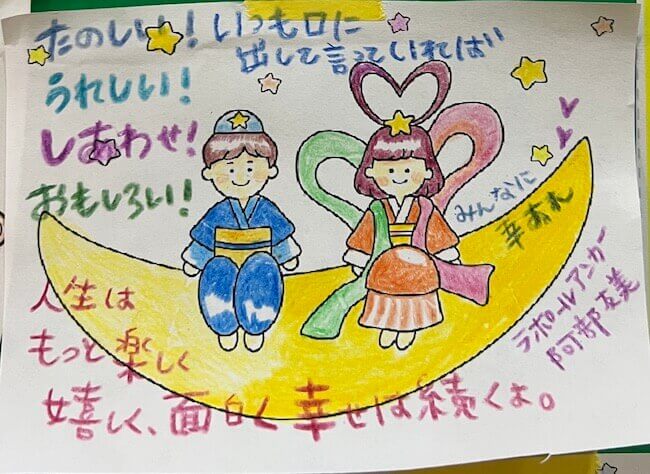 たのしい! いつも口に
出して言っていればい
うれしい!
しあわせ!
おもしろい!
みんなに
幸あれ
人生は
もっと楽しく
嬉しく、面白く幸せは続くよ。
ラポールアンカー
阿部左美